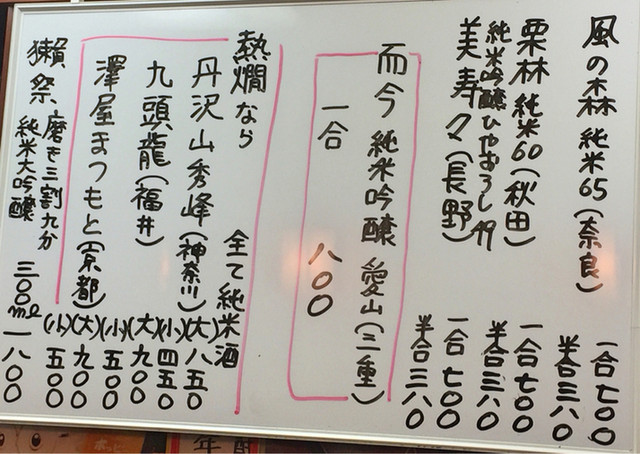 風の森 純米65(奈良)
一合 七〇〇
半合 三八〇
栗林 純米60(秋田)
一合 七〇〇
半合 三八〇
純米吟醸ひやおろし49
美寿々(長野)
一合 七〇〇
半合 三八〇
而今 純米吟醸 愛山(三重)
一合 八〇〇
熱燗なら 全て純米酒
丹沢山秀峰(神奈川)
(大)八五〇
(小)四五〇
九頭龍(福井)
(大)九〇〇
(小)五〇〇
澤屋まつもと(京都)
(大)九〇〇
(小)五〇〇
獺祭 磨き三割九分
純米大吟醸 三〇〇ml 一八〇〇
年